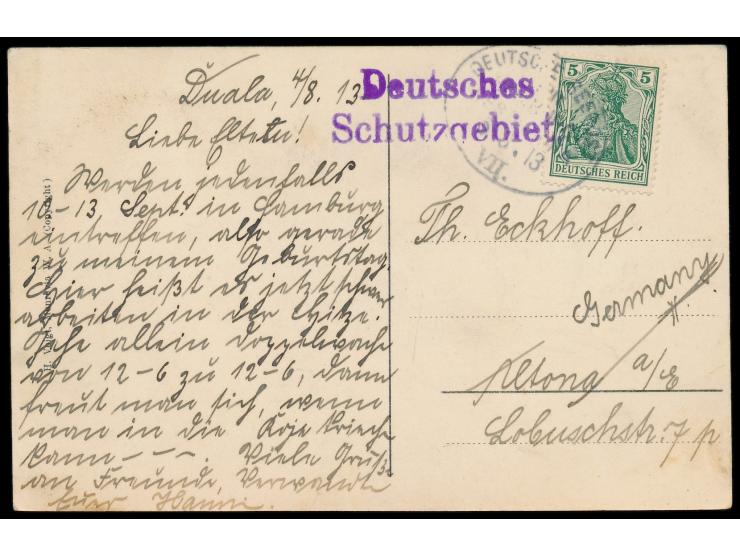 Duala, 4/8. 13
Liebe Eltern!
Werden jedenfalls
10-13 Sept. in Hamburg
eintreffen, also gerade
zu meinem Geburtstag.
Hier heißt es jetzt schwer
arbeiten in der Hitze.
Habe allein Doppelwache
von 12-6 zu 12-6, dann
freut man sich, wenn
man in die Koje kriechen
kann - - -. Viele Grüße
an Freunde, Verwandte
Euer Hanni.
Deutsches
Schutzgebiet
DEUTSCHE SEEPOST
VII.
13
5 5
DEUTSCHES REICH
Th. Eckhoff.
Germany
Altona a/E
Lobuschstr. 7 p
(Copyright)